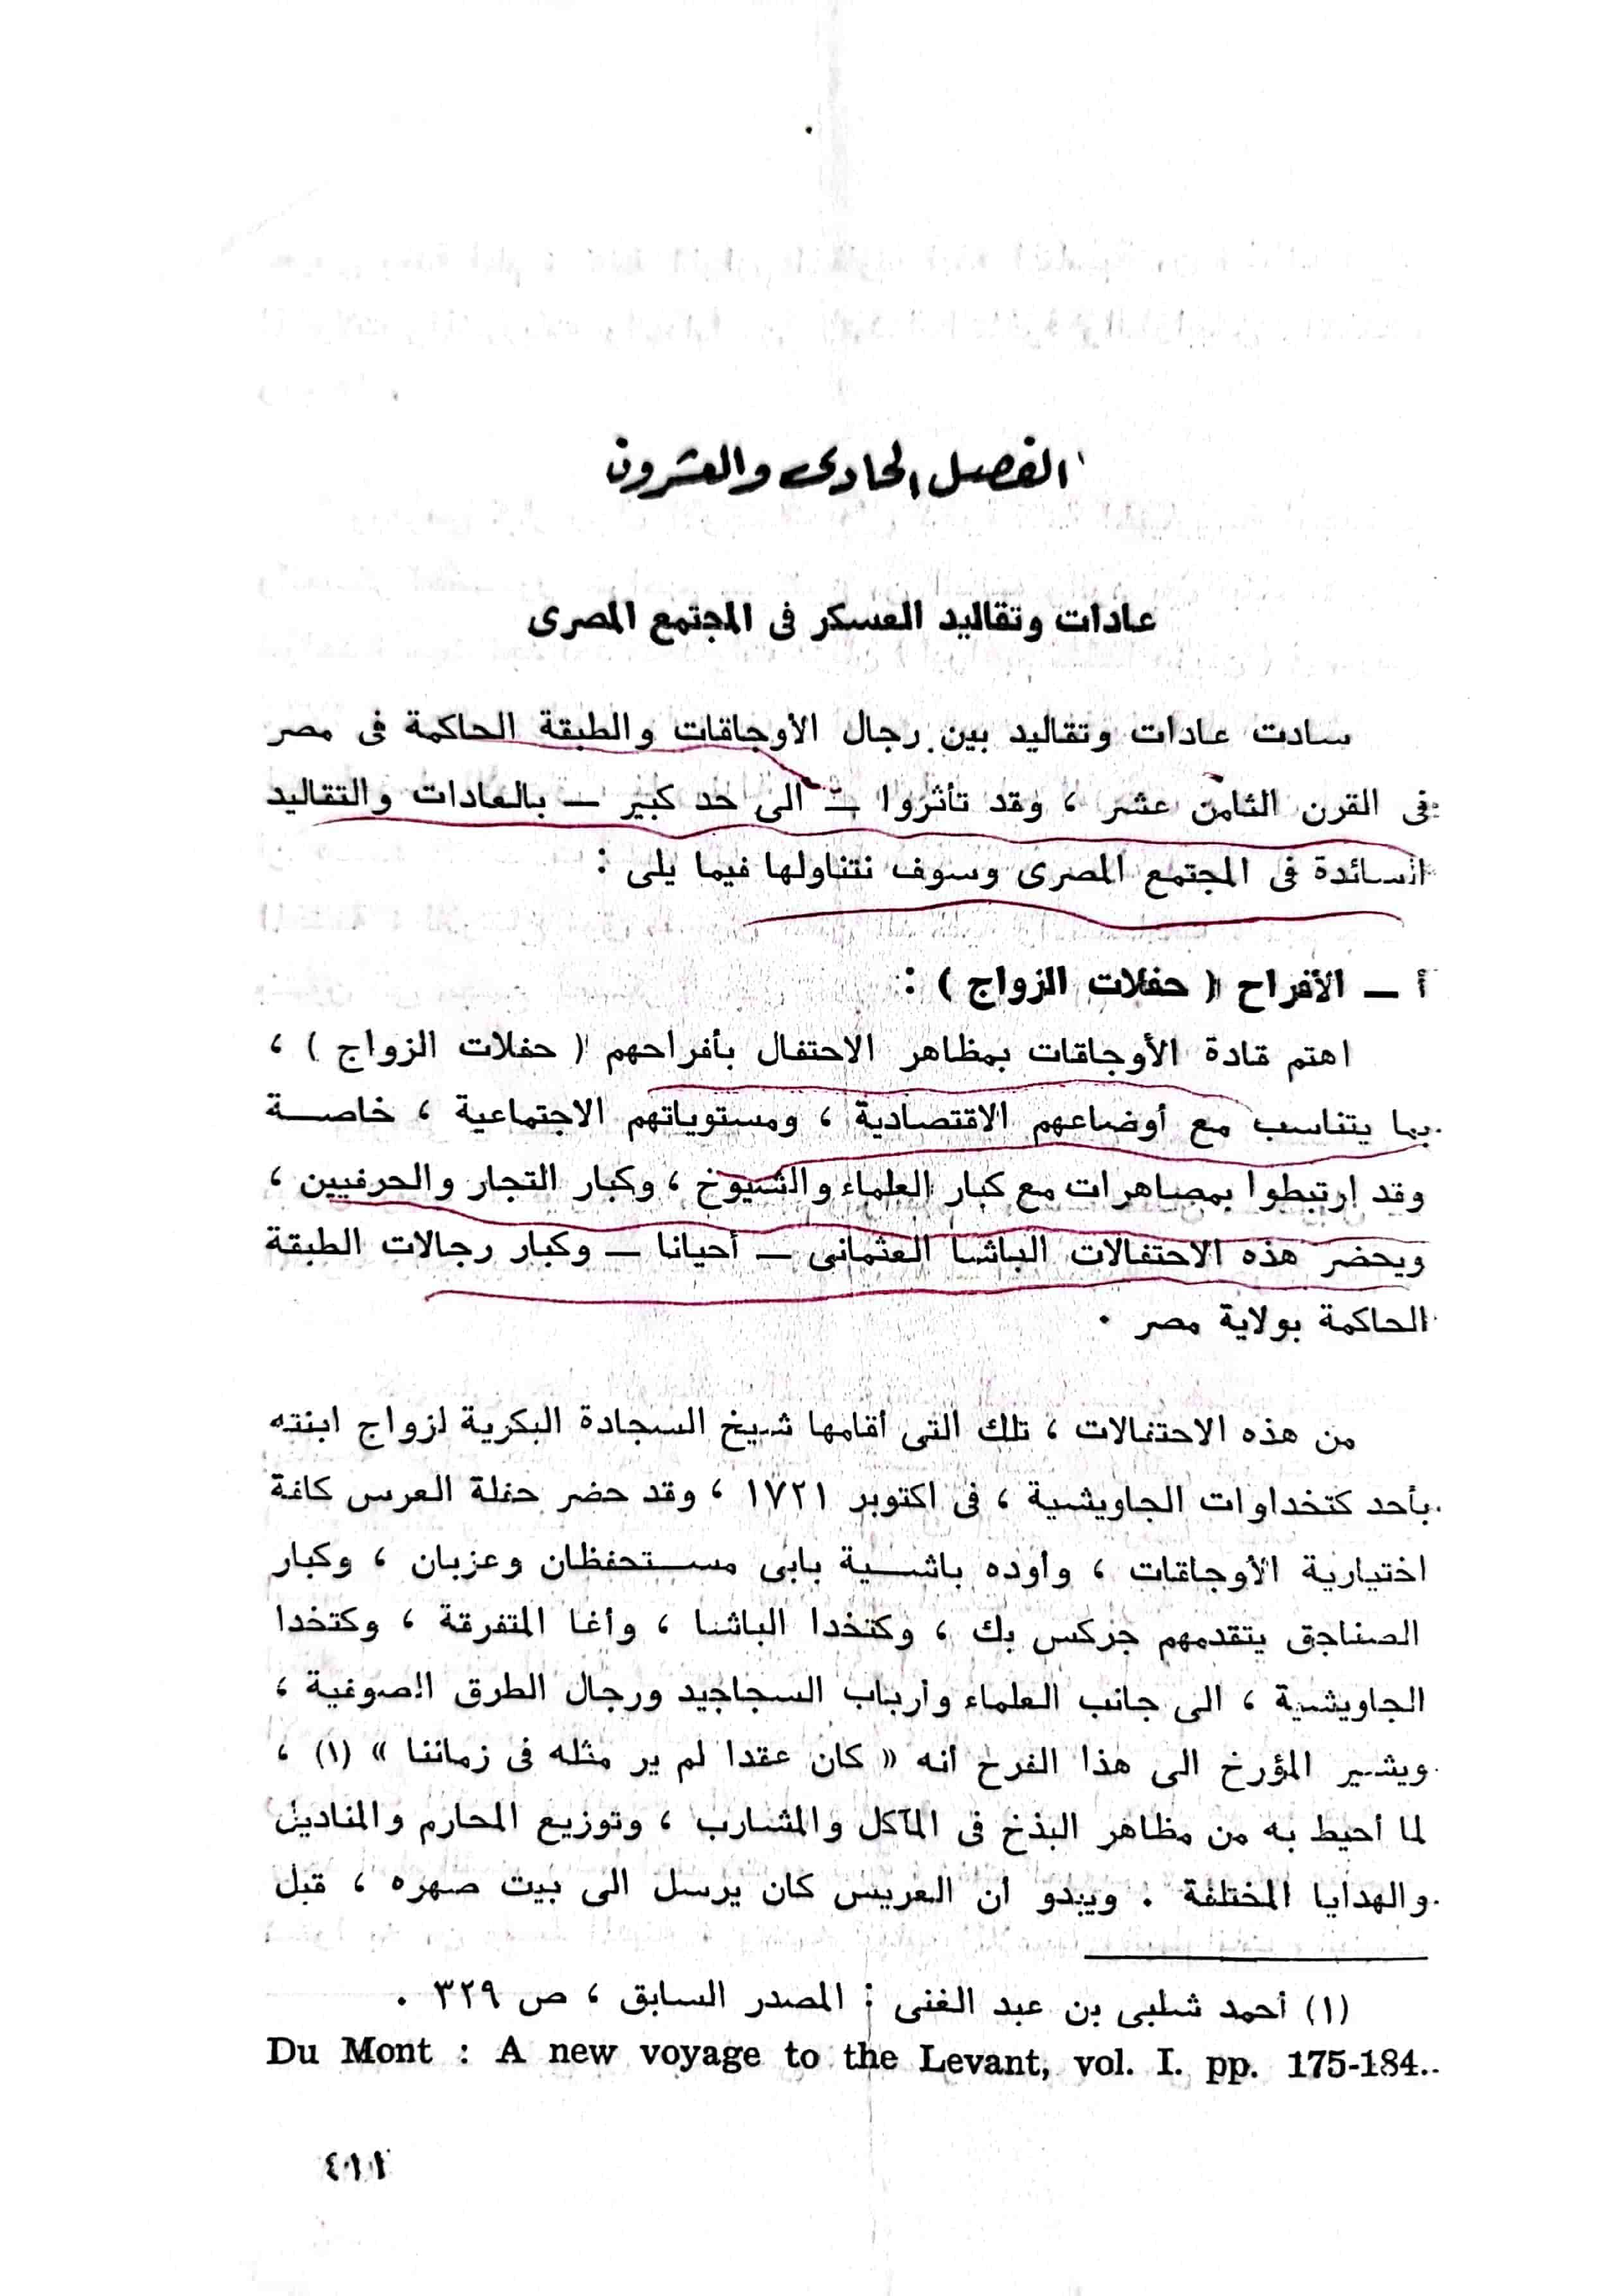 الفصل الحادى والعشرون
عادات وتقاليد العسكر فى المجتمع المصرى
سادت عادات وتقاليد بين رجال الأوجاقات والطبقة الحاكمة فى مصر
فى القرن الثامن عشر ، وقد تأثروا – الى حد كبير – بالعادات والتقاليد
السائدة فى المجتمع المصرى وسوف نتناولها فيما يلى :
أ – الأفراح ( حفلات الزواج ) :
اهتم قادة الأوجاقات بمظاهر الاحتفال بأفراحهم ( حفلات الزواج ) ،
بما يتناسب مع أوضاعهم الاقتصادية ، ومستوياتهم الاجتماعية ، خاصة
وقد ارتبطوا بمصاهرات مع كبار العلماء والشيوخ ، وكبار التجار والحرفيين ،
ويحضر هذه الاحتفالات الباشا العثمانى – أحيانا – وكبار رجالات الطبقة
الحاكمة بولاية مصر .
من هذه الاحتفالات ، تلك التى أقامها شيخ السجادة البكرية لزواج ابنته
بأحد كتخداوات الجاويشية ، فى اكتوبر ١٧٢١ ، وقد حضر حفلة العرس كافة
اختيارية الأوجاقات ، وأوده باشية بابى مستحفظان وعزبان ، وكبار
الصناجق يتقدمهم جركس بك ، وكتخدا الباشا ، وأغا المتفرقة ، وكتخدا
الجاويشية ، الى جانب العلماء وأرباب السجاجيد ورجال الطرق الصوفية ،
ويشير المؤرخ الى هذا الفرح أنه « كان عقدا لم ير مثله فى زماننا » (١) ،
لما أحيط به من مظاهر البذخ فى المآكل والمشارب ، وتوزيع المحارم والمناديل
والهدايا المختلفة . ويبدو أن العريس كان يرسل الى بيت صهره ، قبل
(١) أحمد شلبى بن عبد الغنى : المصدر السابق ، ص ٣٢٩ .
Du Mont : A new voyage to the Levant, vol. I. pp. 175-184..
٤١١